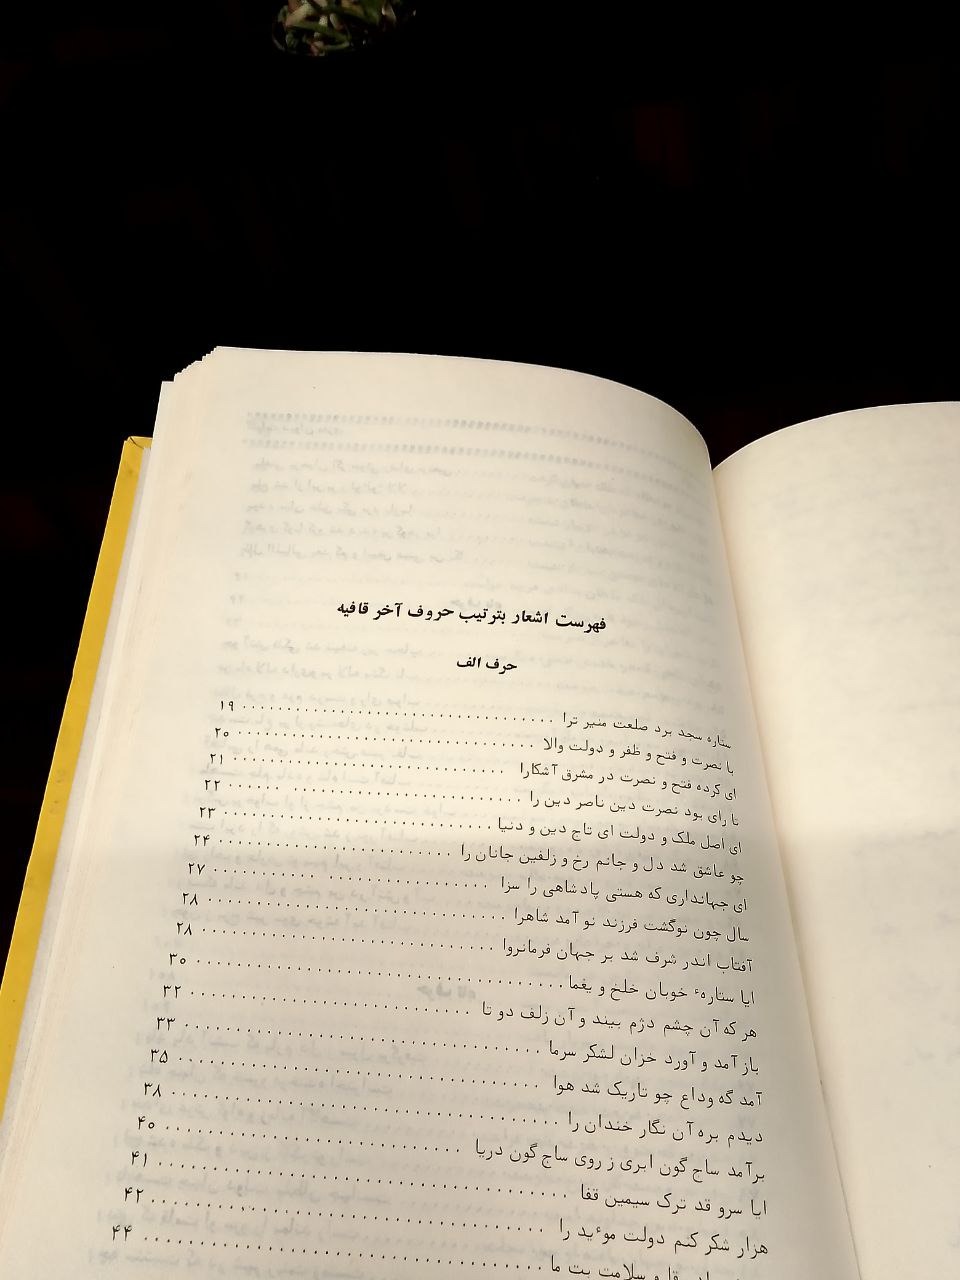 فهرست اشعار بترتیب حروف آخر قافیه
حرف الف
ستاره سجد برد طلعت منیر ترا ۱۹
با نصرت و فتح و ظفر و دولت والا ۲۰
ای کرده فتح و نصرت در مشرق آشکارا ۲۱
تا رای بود نصرت دین ناصر دین را ۲۲
ای اصل ملک و دولت ای تاج دین و دنیا ۲۳
چو عاشق شد دل و جانم رخ و زلفین جانان را ۲۴
ای جهانداری که هستی پادشاهی را سزا ۲۷
سال چون نوگشت فرزند نو آمد شاهرا ۲۸
آفتاب اندر شرف شد بر جهان فرمانروا ۲۸
ایا ستارهٔ خوبان خلخ و یغما ۳۰
هر که آن چشم دژم بیند و آن زلف دو تا ۳۲
باز آمد و آورد خزان لشکر سرما ۳۳
آمد گه وداع چو تاریک شد هوا ۳۵
دیدم بره آن نگار خندان را ۳۸
برآمد ساج گون ابری ز روی ساج گون دریا ۴۰
ایا سرو قد ترک سیمین قفا ۴۱
هزار شکر کنم دولت موٴید را ۴۲
و سلامت بت ما ۴۴